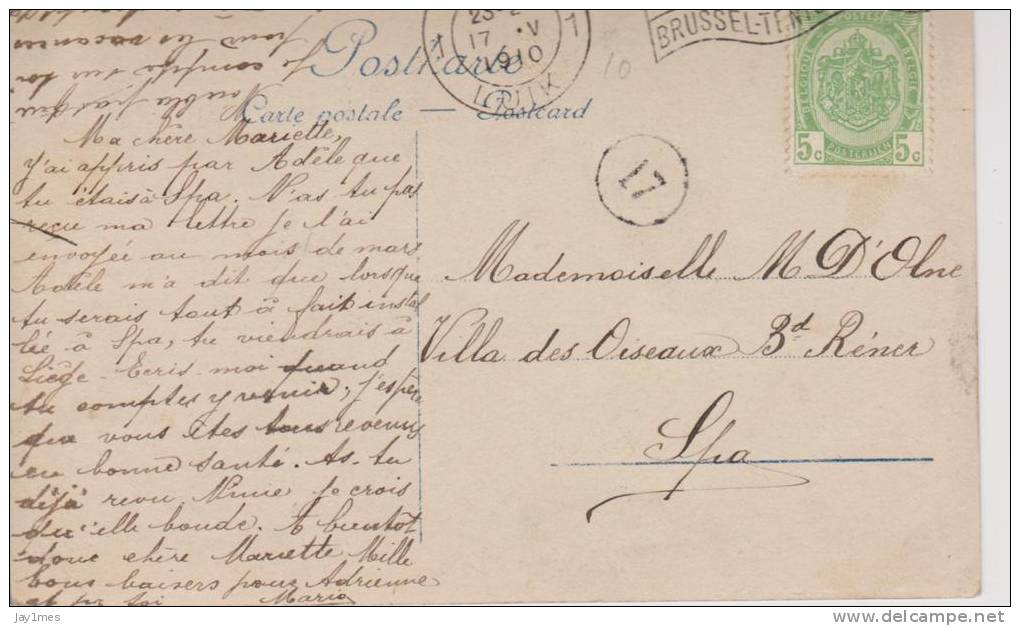 Postkarte
Carte postale — Postcard
23-2
17 · V
1910
1 1
LUIK
BRUSSEL-TENT
10
17
POSTES
BELGIQUE
BELGIË
POSTERIJEN
5c 5c
Ma chère Mariette,
J'ai appris par Adèle que
tu étais à Spa. N'as tu pas
reçu ma lettre je l'ai
envoyée au mois de mars
Adèle m'a dit que lorsque
tu serais tout à fait instal
lée à Spa, tu viendrais à
Liège. Ecris-moi quand
tu comptes y venir, j'espère
que vous êtes tous revenus
en bonne santé. As-tu
déjà revu je crois
qu'elle boude. A bientôt
donc chère Mariette Mille
bons baisers pour Adrienne
et pr toi Maria
N'oublie pas que
je compte sur toi
pour les vacances
Mademoiselle M D'Olne
Villa des Oiseaux Bd Réner
Spa
jay1mes